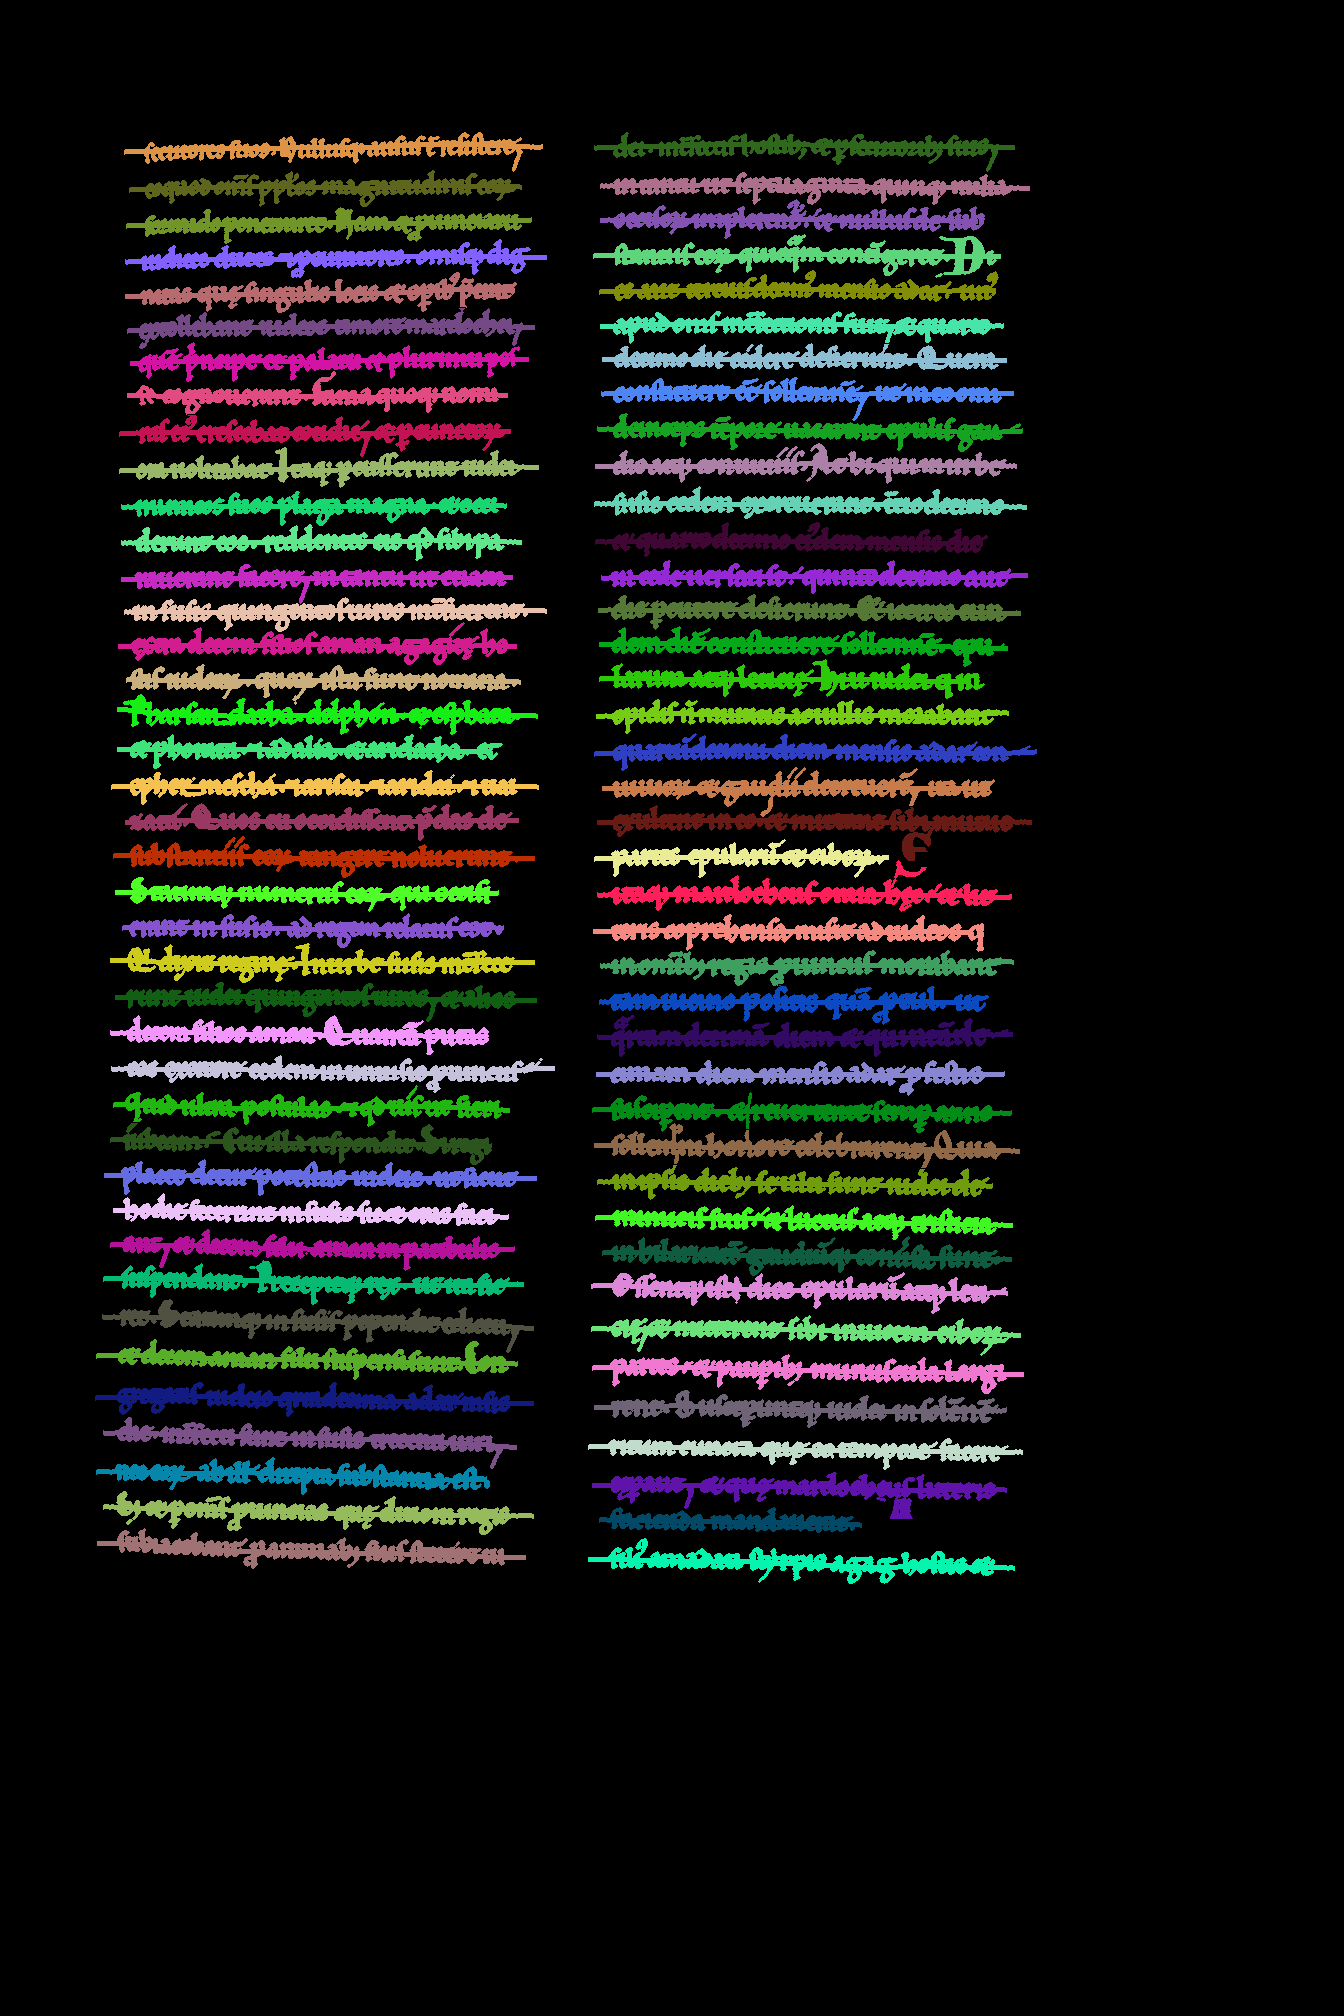 secutores suos. Nullusq; ausus ē resistere,
eoquod oēs ppłos magnitudinis eoꝝ
formido penetrarat. Nam et puinciarū
iudices duces et pcuratores omisq; dig
nitas quę singulis locis ac opib; p̄erat
extollebant iudeos timore mardochei,
quē p̄ncipe ee palacii et plurimū pos
se cognouerant. Fama quoq; nominis
eius crescebat cotidie, et p cunctoꝝ
ora uolitabat. Itaq; pcusserunt iudei
inimicos suos plaga magna et occi
derunt eos. reddentes eis qd sibi pa
rauerant facere, in tantū ut etiam
in susis quingentos uiros intficerent
extra decem filios aman agagitę ho
stis iudeoꝝ, quoꝝ ista sunt nomina.
Pharsan datha. delphon. et esphata
et phorata. et adalia. et aridatha. et
ephermesta. et arisai. et aridai. et uai
zatha. Quos cū occidissent p̄das de
substantiis eoꝝ tangere noluerunt.
Statimq; numerus eoꝝ qui occisi
erant in susis. ad regem relatus est.
Qui dixit reginę. In urbe susis intfece
runt iudei quingentos uiros, et alios
decem filios aman. Quantā putas
eos exercere cedem in uniuersis puinciis.
quid ultra postulas. et qd uis ut fieri
iubeam. Cui illa respondit. Si regi
placet detur potestas iudeis. ut sicut
hodie fecerunt in susis sic et cras faci
ant, et decem filii aman in patibulis
suspendant. Precepitq; rex ut ita fie
ret. Statimq; in susis pependit edictū,
et decem aman filii suspensi sunt. Con
gregatis iudeis quartadecima adar msis
die intfecti sunt in susis trecenti uiri,
nec eoꝝ ab illis direpta substantia est.
Sꝫ et p om̄s puincias quę dicioni regis
subiacebant p animab; suis steterūt iu
dei. intfectis hostib; ac psecutorib; suis,
in tantū ut septuaginta quinq; milia
occisoꝝ implerent. et nullus de sub
stantiis eoꝝ quicqm contingeret. Di
es aut terciusdecim mensis adar. un
apud om̄s intfectionis fuit, et quarta
decima die cedere desierunt. Quem
constituerunt ee sollemnē, ut in eo omi
deinceps tēpore uacarent epulis gau
dio atq; conuiuiis. At hi qui in urbe
susis cedem exercuerant. tercio decimo
et quarto decimo eiusdem mensis die
in cede uersati s̄t. quintodecimo aut
die pcutere desierunt. Et iccirco eun
dem diē constituere sollemnē. epu
larum atq; leticię. Hii uidei q in
opidis n̄ muratis ac uillis morabant
quartūdecimū diem mensis adar con
uiuioꝝ et gaudii decreuerūt, ita ut
exultent in eo et mittant sibi mutuo
partes epularū et ciboꝝ. S
cripsitq; mardocheus omia hęc. et litte
ris comprehensa misit ad iudeos q
in omib; regis puinciis morabant
tam in uicino positos quā pcul. ut
quartadecimā diem et quintā deci
mam diem mensis adar p festis
susciperent. et reuertente semp anno
sollempni honore celebrarent, Quia
in ipsis dieb; se ulti sunt iudei de
inimicis suis. et luctus atq; tristicia
in hilaritatē gaudiūq; conuersa sunt.
Essentq; isti dies epularū atq; leti
cię, et mitterent sibi inuicem ciboꝝ
partes. et paupib; munuscula largi
rent. Susceperuntq; iudei in sollēnē
ritum cuncta que eo tempore facere
ceperant, et que mardocheus litteris
facienda mandauerat.
filius amadati stirpis agag hostis et